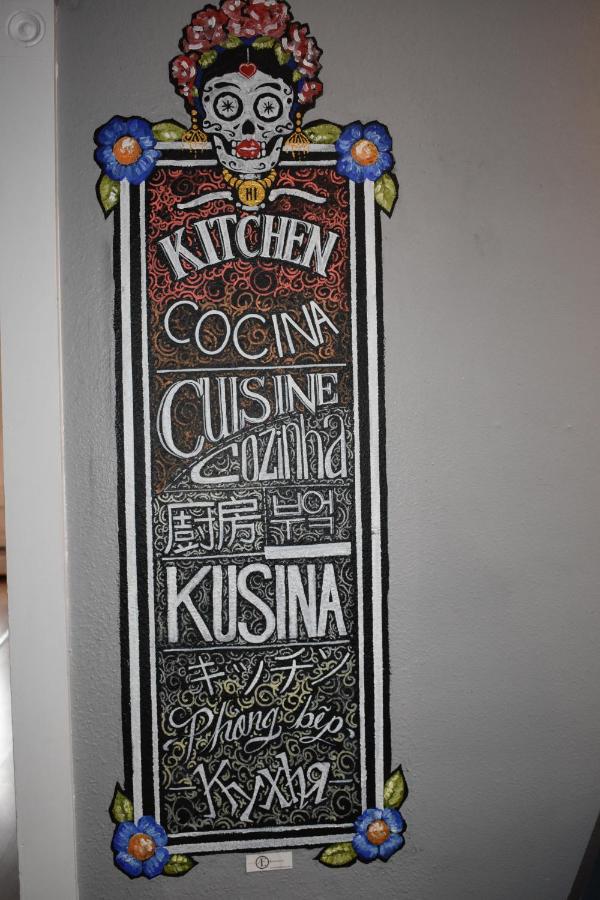 HI
KITCHEN
COCINA
CUISINE
Cozinha
廚房 부엌
KUSINA
キッチツ
Phong bếp
Кухня